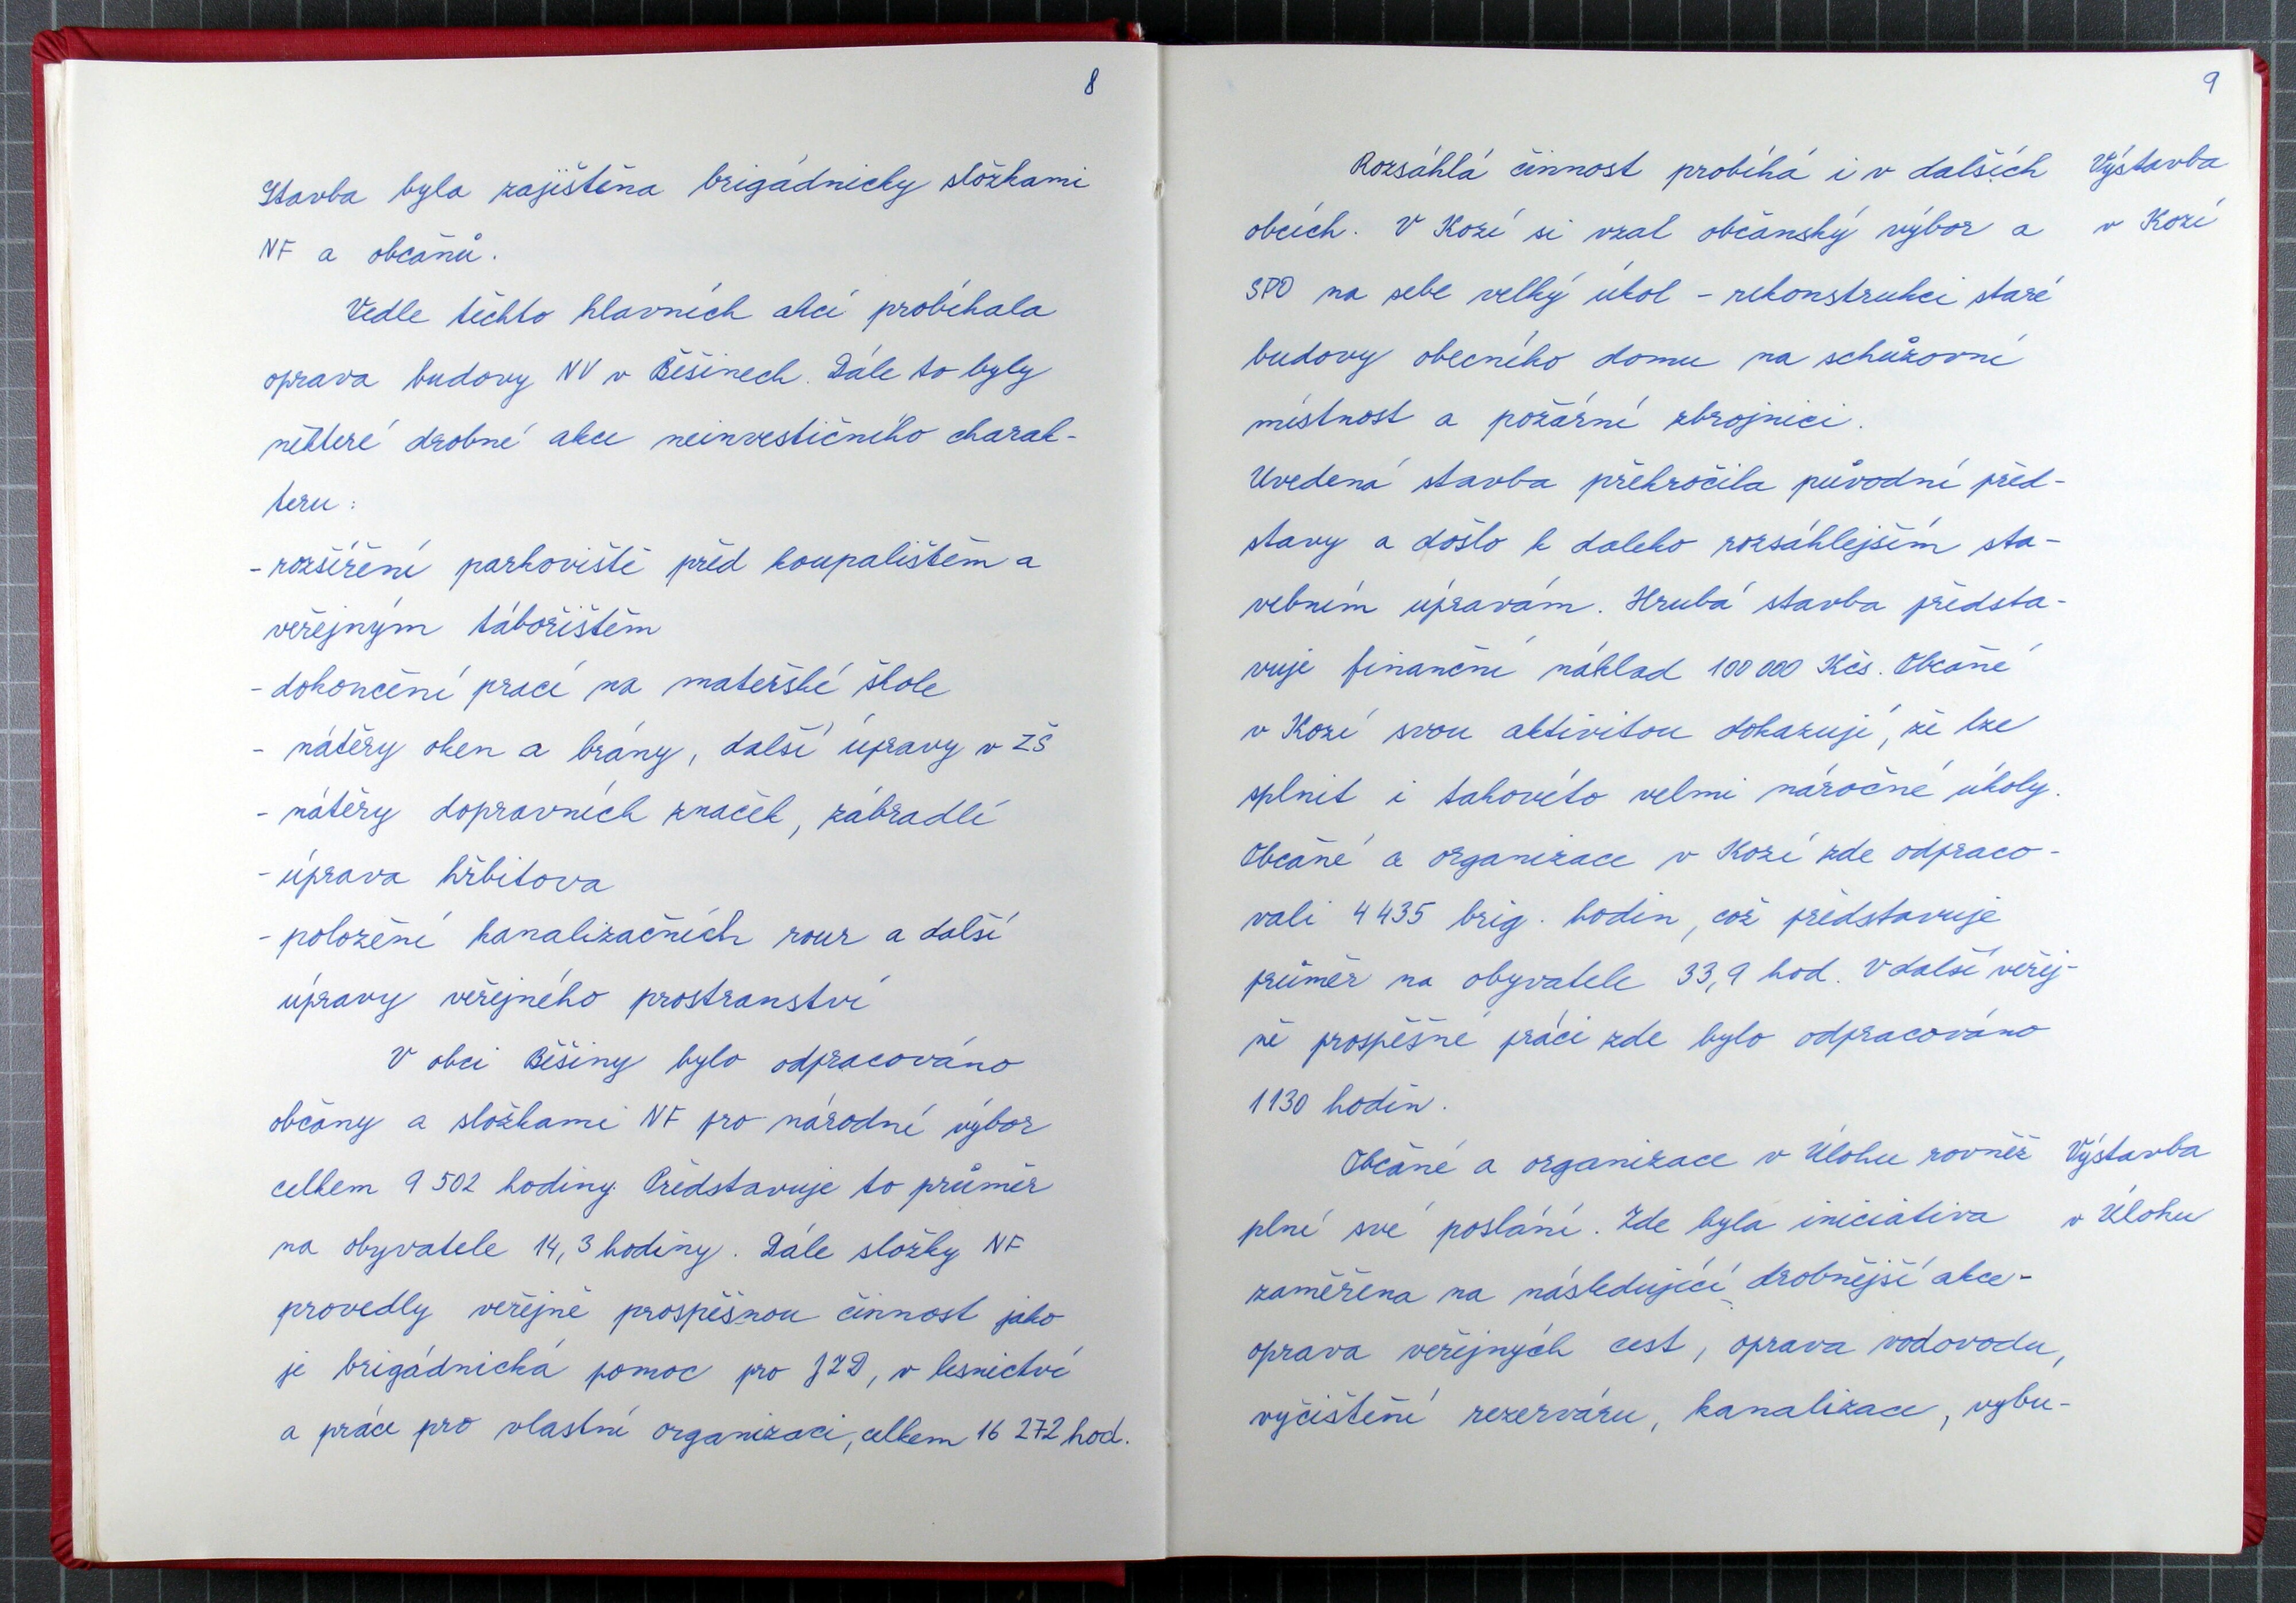 8
Stavba byla zajištěna brigádnicky složkami
NF a občanů.
Vedle těchto hlavních akcí probíhala
oprava budovy NV v Běšinech. Dále to byly
některé drobné akce neinvestičního charak-
teru:
- rozšíření parkoviště před koupalištěm a
veřejným tábořištěm
- dokončení prací na mateřské škole
- nátěry oken a brány, další úpravy v ZŠ
- nátěry dopravních značek, zábradlí
- úprava hřbitova
- položení kanalizačních rour a další
úpravy veřejného prostranství
V obci Běšiny bylo odpracováno
občany a složkami NF pro národní výbor
celkem 9 502 hodiny. Představuje to průměr
na obyvatele 14,3 hodiny. Dále složky NF
provedly veřejně prospěšnou činnost jako
je brigádnická pomoc pro JZD, v lesnictví
a práce pro vlastní organizaci, celkem 16 272 hod.
9
Rozsáhlá činnost probíhá i v dalších
Výstavba
obcích. V Kozí si vzal občanský výbor a
v Kozí
SPO na sebe velký úkol - rekonstrukci staré
budovy obecního domu na schůzovní
místnost a požární zbrojnici.
Uvedená stavba překročila původní před-
stavy a došlo k daleko rozsáhlejším sta-
vebním úpravám. Hrubá stavba předsta-
vuje finanční náklad 100 000 Kčs. Občané
v Kozí svou aktivitou dokazují, že lze
splnit i takovéto velmi náročné úkoly.
Občané a organizace v Kozí zde odpraco-
vali 4 435 brig. hodin, což představuje
průměr na obyvatele 33,9 hod. V další veřej-
ně prospěšné práci zde bylo odpracováno
1 130 hodin.
Občané a organizace v Úlohu rovněž
Výstavba
plní své poslání. Zde byla iniciativa
v Úlohu
zaměřena na následující drobnější akce-
oprava veřejných cest, oprava vodovodu,
vyčištění rezerváru, kanalizace, vybu-